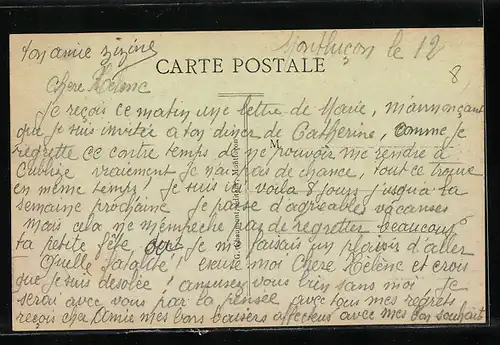 ton amie zizine
Montluçon le 12
8
CARTE POSTALE
Chere Helene
Je reçois ce matin une lettre de Marie, m'annonçant
que je suis invitée à ton diner de Catherine, comme je
regrette ce contre temps de ne pouvoir me rendre à
vraiement je n'ai pas de chance, tout ce
en même temps, je suis ici voila 8 jours jusqu'a la
semaine prochaine je passe d'agreables vacances
mais cela ne m'empêche pas de regretter beaucoup
ta petite fête je me faisais un plaisir d'aller
Quelle fatalité! excuse moi Chere Hélène et crois
que je suis desolée! amusez vous bien sans moi Je
serai avec vous par la pensée avec tous mes regrets
reçois cher Amie mes bons baisers affectueux avec mes bon souhait